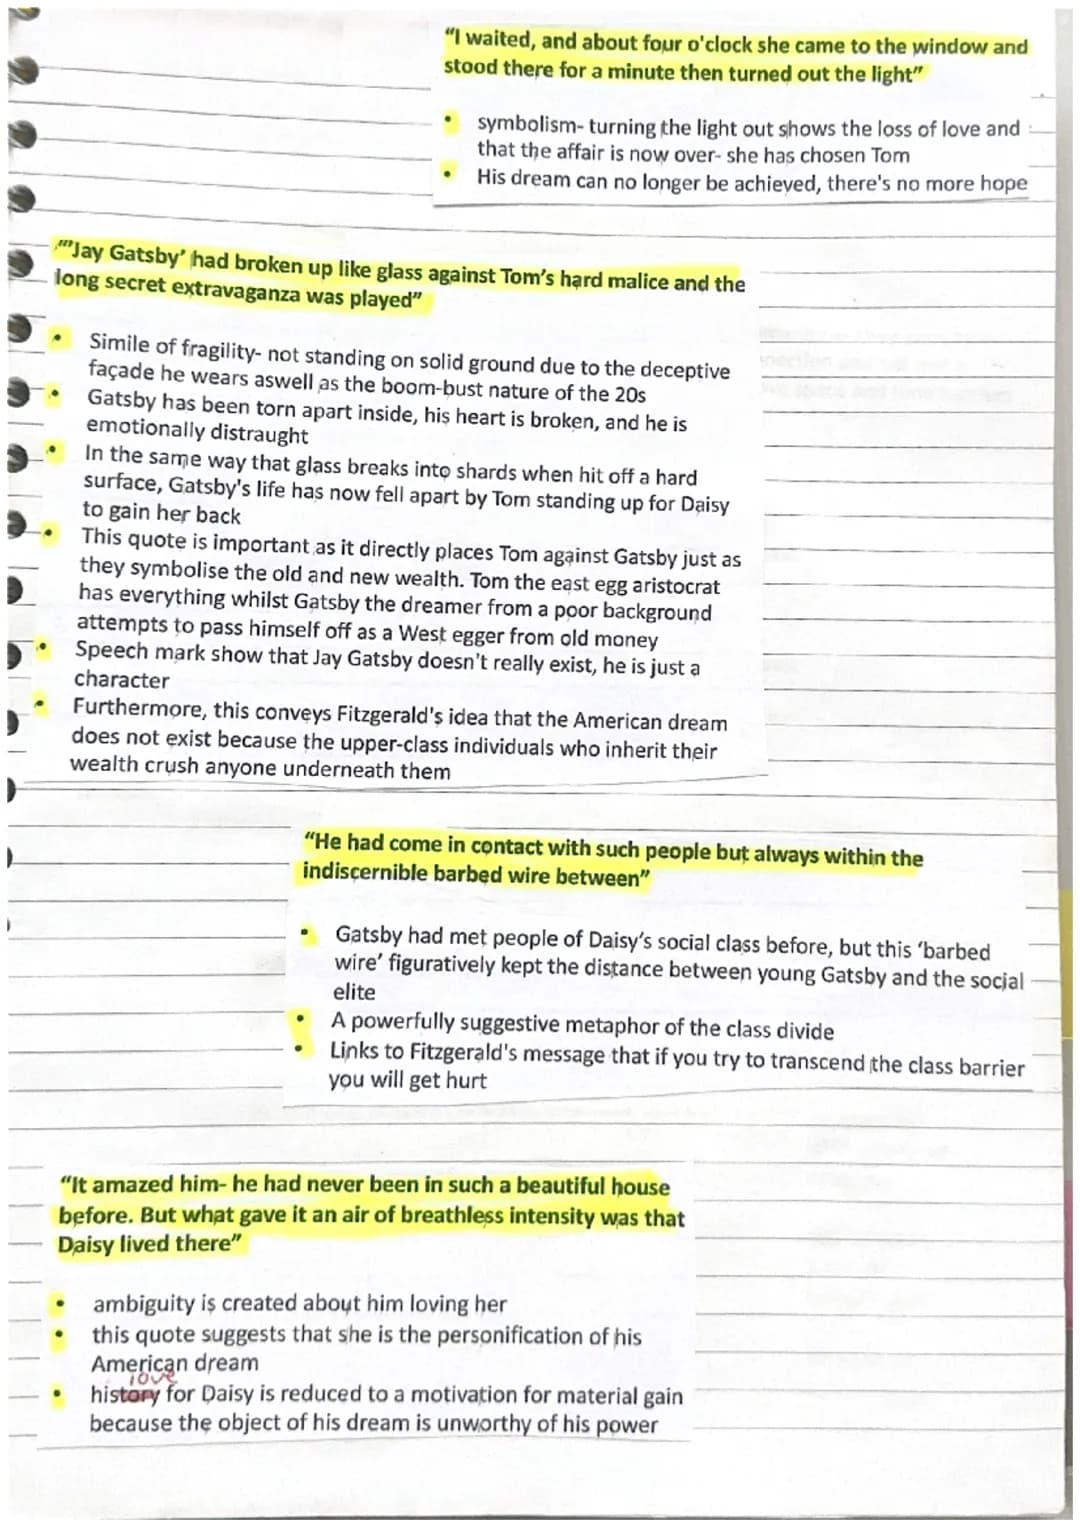 “I waited, and about four o'clock she came to the window and
stood there for a minute then turned out the light”
• symbolism- turning the light out shows the loss of love and
that the affair is now over- she has chosen Tom
• His dream can no longer be achieved, there's no more hope
“‘Jay Gatsby’ had broken up like glass against Tom’s hard malice and the
long secret extravaganza was played”
• Simile of fragility- not standing on solid ground due to the deceptive
façade he wears aswell as the boom-bust nature of the 20s
• Gatsby has been torn apart inside, his heart is broken, and he is
emotionally distraught
• In the same way that glass breaks into shards when hit off a hard
surface, Gatsby's life has now fell apart by Tom standing up for Daisy
to gain her back
• This quote is important as it directly places Tom against Gatsby just as
they symbolise the old and new wealth. Tom the east egg aristocrat
has everything whilst Gatsby the dreamer from a poor background
attempts to pass himself off as a West egger from old money
• Speech mark show that Jay Gatsby doesn't really exist, he is just a
character
• Furthermore, this conveys Fitzgerald's idea that the American dream
does not exist because the upper-class individuals who inherit their
wealth crush anyone underneath them
“He had come in contact with such people but always within the
indiscernible barbed wire between”
• Gatsby had met people of Daisy’s social class before, but this ‘barbed
wire’ figuratively kept the distance between young Gatsby and the social
elite
• A powerfully suggestive metaphor of the class divide
• Links to Fitzgerald's message that if you try to transcend the class barrier
you will get hurt
“It amazed him- he had never been in such a beautiful house
before. But what gave it an air of breathless intensity was that
Daisy lived there”
• ambiguity is created about him loving her
• this quote suggests that she is the personification of his
American dream
love
• history for Daisy is reduced to a motivation for material gain
because the object of his dream is unworthy of his power